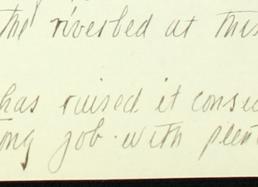 the riverbed at this
has ruised it conse
ong job. with plen